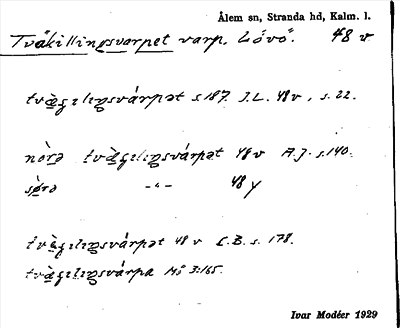 Ålem sn, Stranda hd, Kalm. l.
Tvåkillingsvarpet varp. Lövö. 48 v
tvæ̀ɕɩlɩŋsvárpət s. 187. J.L. 48v, s. 22.
nòrə tvæ̀ɕɩlɩŋsvárpət 48 v A.J. s. 140.
sø̀rə -"- 48 y
tvæ̀ɕɩlɩŋsvárpət 48 v C.B. s. 178.
tvæ̀ɕɩlɩŋsvárpa Mö 3:165.
Ivar Modéer 1929